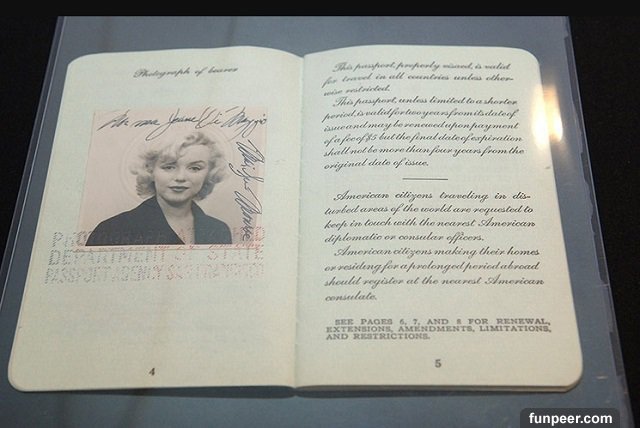 Photograph of bearer
Norma Jeane Di Maggio
DEPARTMENT OF STATE
PASSPORT AGENCY
4
This passport, properly visaed, is valid
for travel in all countries unless other-
wise restricted.
This passport, unless limited to a shorter
period, is valid for two years from its date of
issue and may be renewed upon payment
of a fee of $5 but the final date of expiration
shall not be more than four years from the
original date of issue.
American citizens traveling in dis-
turbed areas of the world are requested to
keep in touch with the nearest American
diplomatic or consular officers.
American citizens making their homes
or residing for a prolonged period abroad
should register at the nearest American
consulate.
SEE PAGES 6, 7, AND 8 FOR RENEWAL,
EXTENSIONS, AMENDMENTS, LIMITATIONS,
AND RESTRICTIONS.
5
funpeer.com